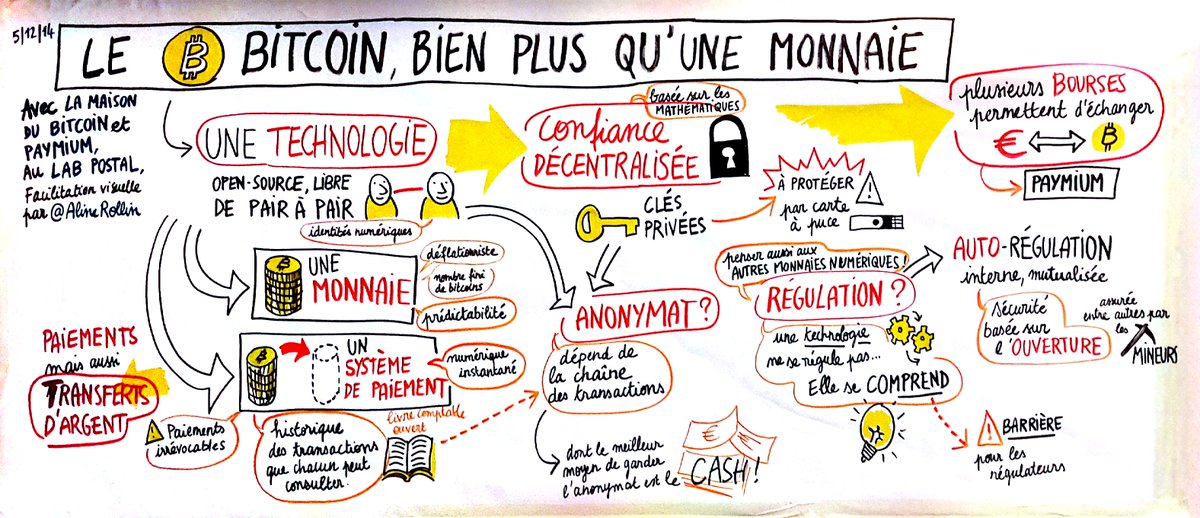 5/12/14
LE BITCOIN, BIEN PLUS QU'UNE MONNAIE
Avec LA MAISON
DU BITCOIN et
PAYMIUM,
AU LAB POSTAL,
Facilitation visuelle
par @AlineRollin
UNE TECHNOLOGIE
OPEN-SOURCE, LIBRE
DE PAIR À PAIR
identités numériques
basée sur les
MATHÉMATIQUES
Confiance
DÉCENTRALISÉE
CLÉS
PRIVÉES
À PROTÉGER
par carte
à puce
plusieurs BOURSES
permettent d'échanger
€ B
PAYMIUM
UNE
MONNAIE
déflationniste
nombre fini
de bitcoins
prédictabilité
UN
SYSTÈME
DE PAIEMENT
numérique
instantané
PAIEMENTS
mais aussi
TRANSFERTS
D'ARGENT
Paiements
irrévocables
historique
des transactions
que chacun peut
consulter!
livre comptable
ouvert
ANONYMAT?
dépend de
la chaîne
des transactions
dont le meilleur
moyen de garder
l'anonymat est le CASH!
penser aussi aux
AUTRES MONNAIES NUMÉRIQUES!
RÉGULATION?
une technologie
ne se régule pas...
Elle se COMPREND
BARRIÈRE
pour les
régulateurs
AUTO-RÉGULATION
interne, mutualisée
Sécurité
basée sur
l'OUVERTURE
assurée
entre autres par
les
MINEURS